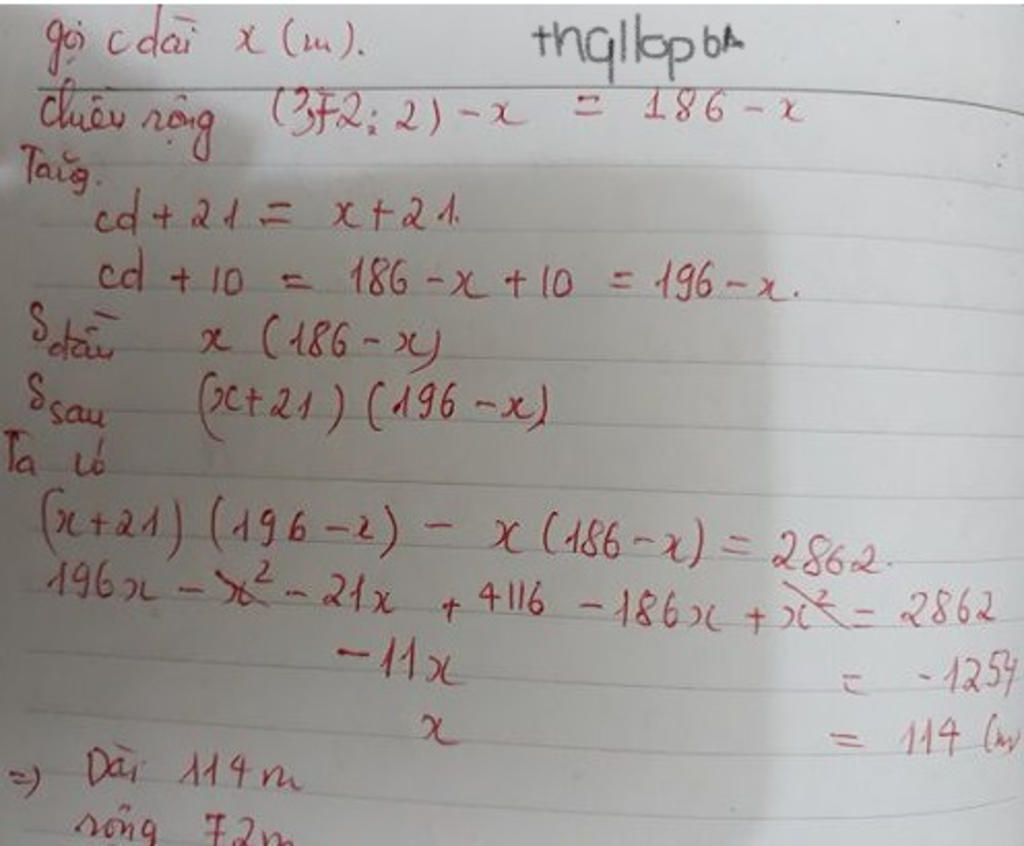 gọi c dài x (m).
thqllopbA
chiều rộng (372:2) - x = 186 - x
Tăng.
cd + 21 = x + 21.
cd + 10 = 186 - x + 10 = 196 - x.
S đầu x (186 - x)
S sau (x+21) (196 - x)
Ta có
(x+21) (196 - x) - x (186 - x) = 2862.
196x - x² - 21x + 4116 - 186x + x² = 2862
-11x = -1254
x = 114 (m
=) Dài 114 m
rộng 72m